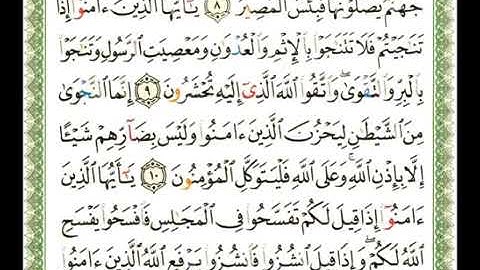 جَهَنَّمُ يَصْلَوْنَهَا فَبِئْسَ ٱلْمَصِيرُ ٨ يَـٰٓأَيُّهَا ٱلَّذِينَ ءَامَنُوٓا۟ إِذَا
تَنَـٰجَيْتُمْ فَلَا تَتَنَـٰجَوْا۟ بِٱلْإِثْمِ وَٱلْعُدْوَٰنِ وَمَعْصِيَتِ ٱلرَّسُولِ وَتَنَـٰجَوْا۟
بِٱلْبِرِّ وَٱلتَّقْوَىٰ ۖ وَٱتَّقُوا۟ ٱللَّهَ ٱلَّذِىٓ إِلَيْهِ تُحْشَرُونَ ٩ إِنَّمَا ٱلنَّجْوَىٰ
مِنَ ٱلشَّيْطَـٰنِ لِيَحْزُنَ ٱلَّذِينَ ءَامَنُوا۟ وَلَيْسَ بِضَآرِّهِمْ شَيْـًٔا
إِلَّا بِإِذْنِ ٱللَّهِ ۚ وَعَلَى ٱللَّهِ فَلْيَتَوَكَّلِ ٱلْمُؤْمِنُونَ ١٠ يَـٰٓأَيُّهَا ٱلَّذِينَ
ءَامَنُوٓا۟ إِذَا قِيلَ لَكُمْ تَفَسَّحُوا۟ فِى ٱلْمَجَـٰلِسِ فَٱفْسَحُوا۟ يَفْسَحِ
ٱللَّهُ لَكُمْ ۖ وَإِذَا قِيلَ ٱنشُزُوا۟ فَٱنشُزُوا۟ يَرْفَعِ ٱللَّهُ ٱلَّذِينَ ءَامَنُوا۟